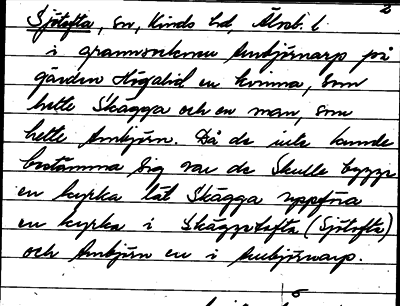 2
Sjötofta, sn, Kinds hd, Älvsb. l.
i grannsocknen Ambjörnarp på
gården Högalid en kvinna, som
hette Skägga och en man, som
hette Ambjörn. Då de inte kunde
bestämma sig var de skulle bygga
en kyrka lät Skägga uppföra
en kyrka i Skäggtofta (Sjötofta)
och Ambjörn en i Ambjörnarp.